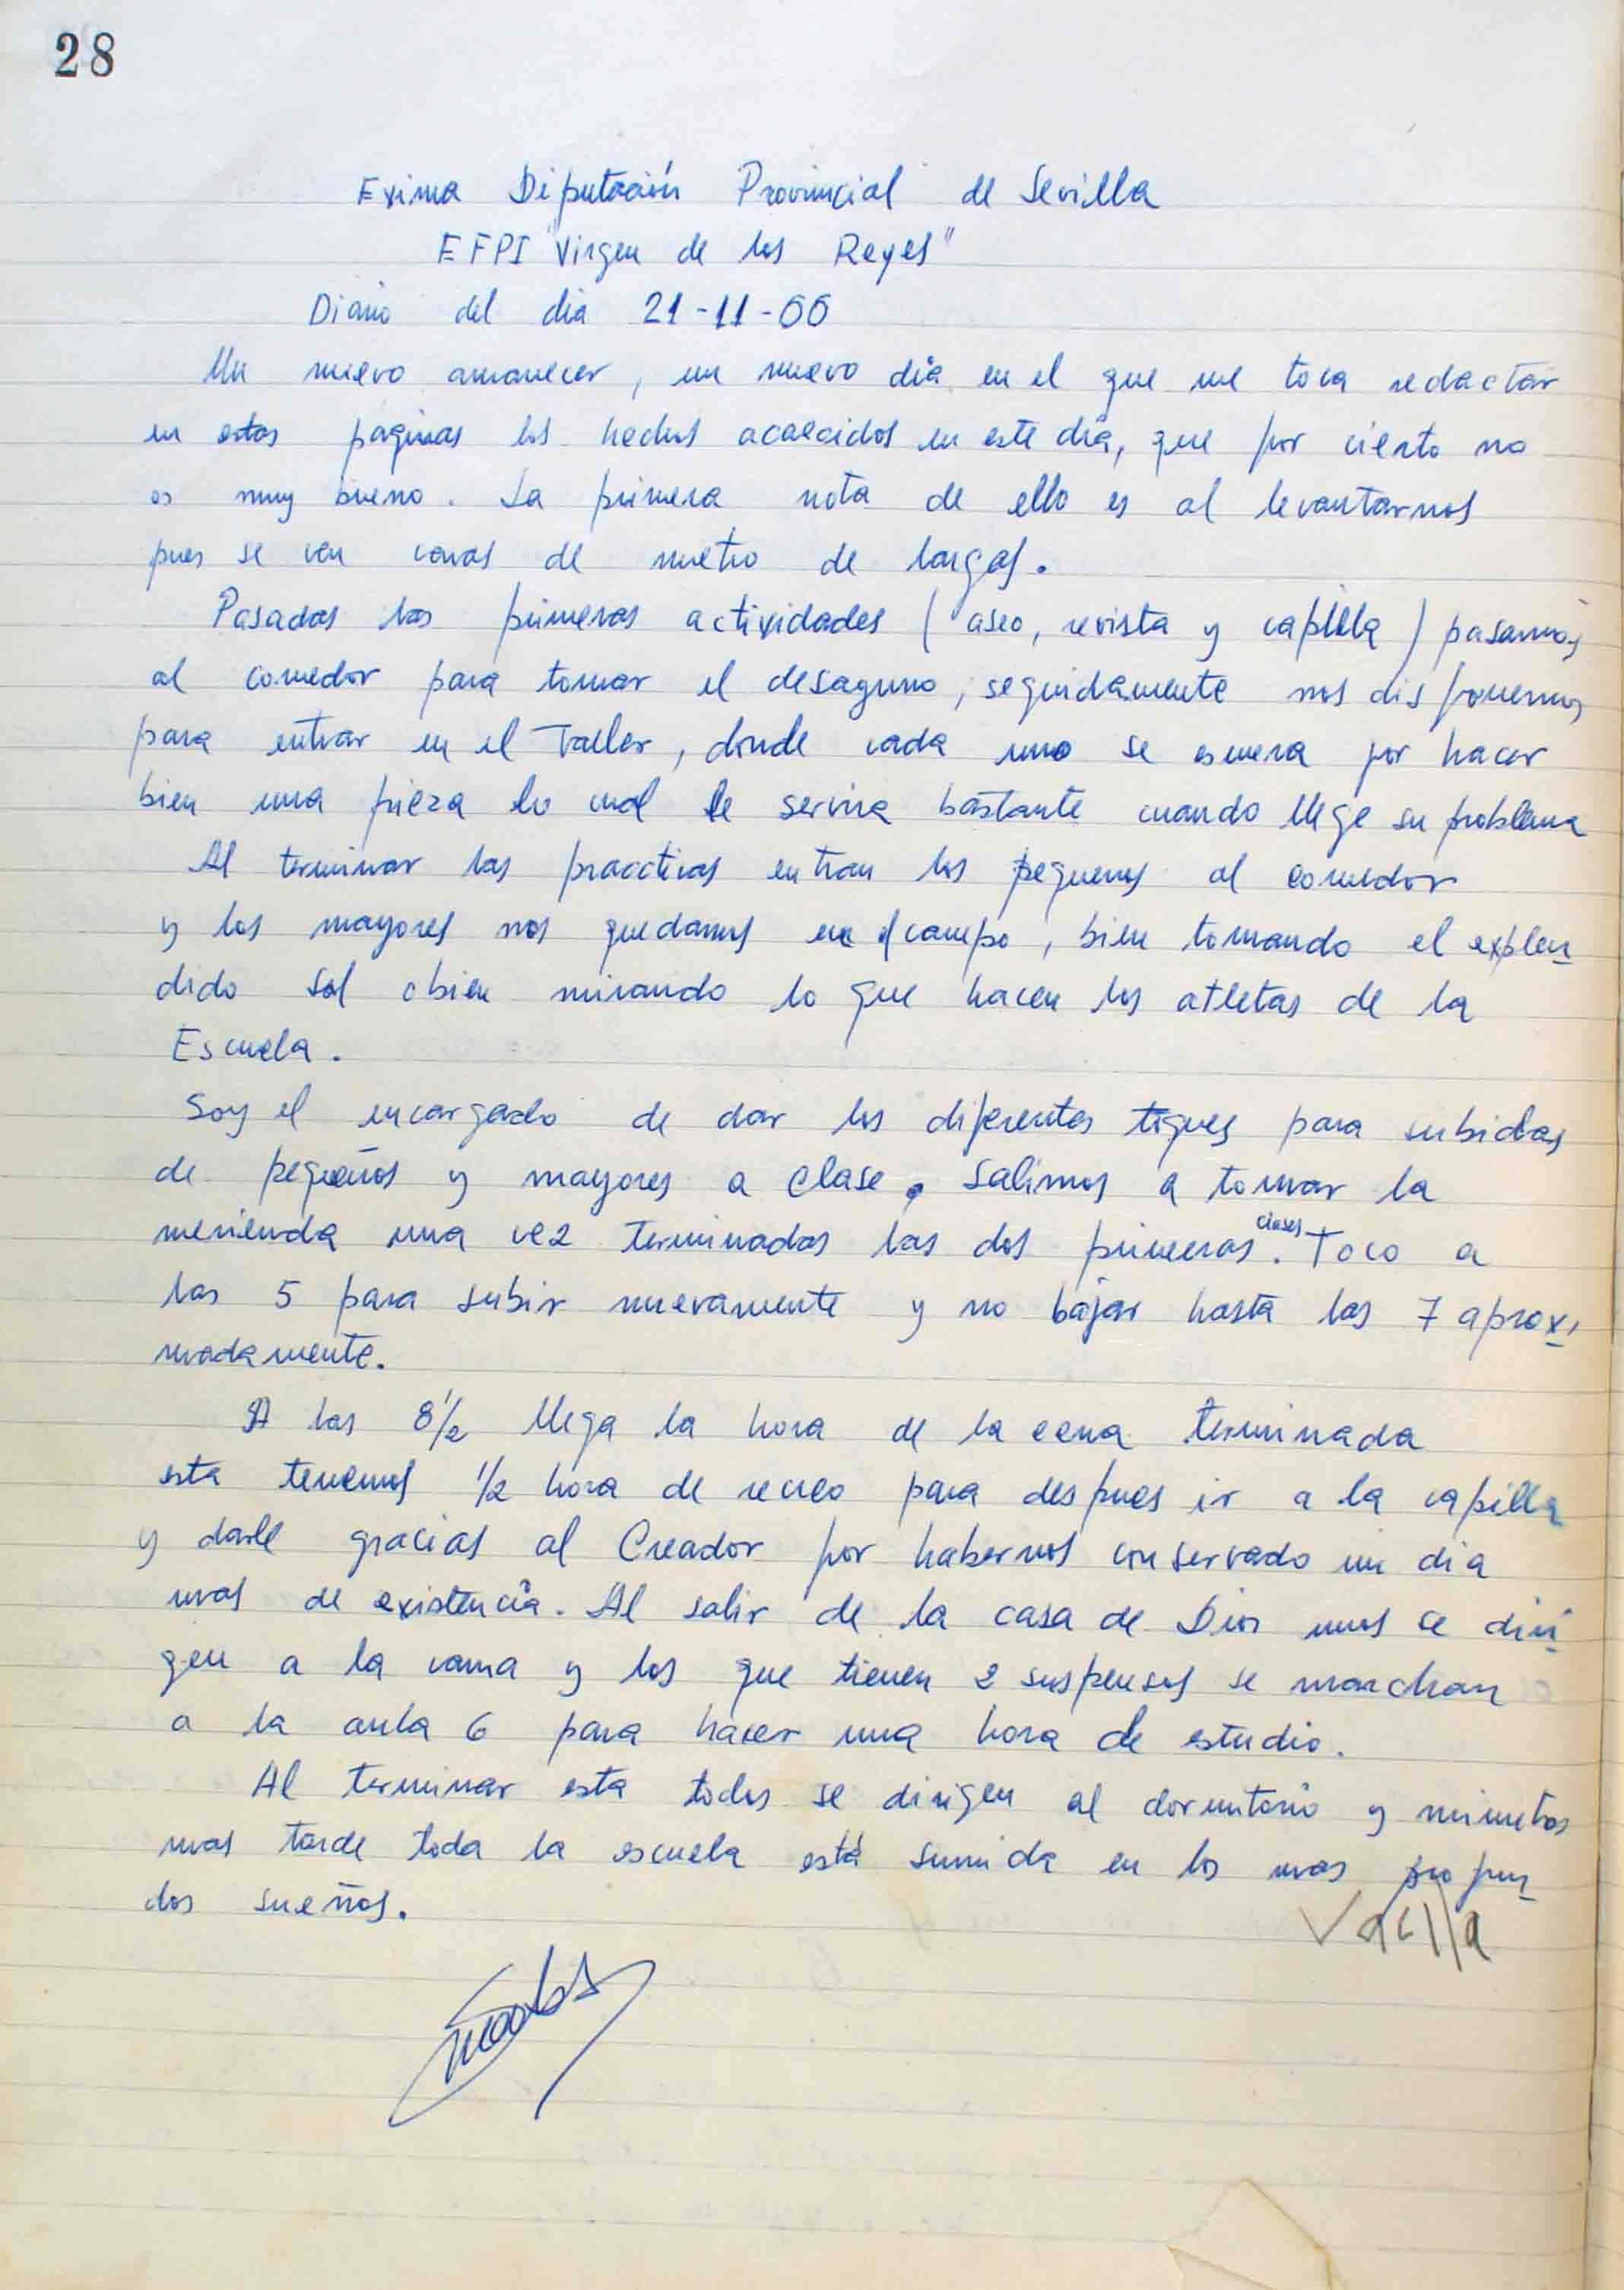 28
Exima Diputación Provincial de Sevilla
EFPI "Virgen de los Reyes"
Diario del dia 21-11-66
Un nuevo amanecer, un nuevo dia en el que me toca redactar
en estas paginas los hechos acaecidos en este dia, que por cierto no
es muy bueno. La primera nota de ello es al levantarnos
pues se ven caras de metro de largas.
Pasadas las primeras actividades (aseo, revista y capilla) pasamos
al comedor para tomar el desaguno, seguidamente nos disponemos
para entrar en el Taller, donde cada uno se esmera por hacer
bien una pieza lo cual le servira bastante cuando llege su problema
Al terminar las practicas entran los pequenos al comedor
y los mayores nos quedamos en el campo, bien tomando el explen
dido sol obien mirando lo que hacen los atletas de la
Escuela.
Soy el encargado de dar los diferentes tiques para subidas
de pequeños y mayores a clase. Salimos a tomar la
merienda una vez terminadas las dos primeras clases. Toco a
las 5 para subir nuevamente y no bajar hasta las 7 aproxi
madamente.
A las 8½ llega la hora de la cena terminada
esta tenemos ½ hora de recreo para despues ir a la capilla
y darle gracias al Creador por habernos conservado un dia
mas de existencia. Al salir de la casa de Dios unos se diri
gen a la cama y los que tienen 2 suspensos se marchan
a la aula 6 para hacer una hora de estudio.
Al terminar esta todos se dirigen al dormitorio y minutos
mas tarde toda la escuela está sumida en los mas profun
dos sueños.